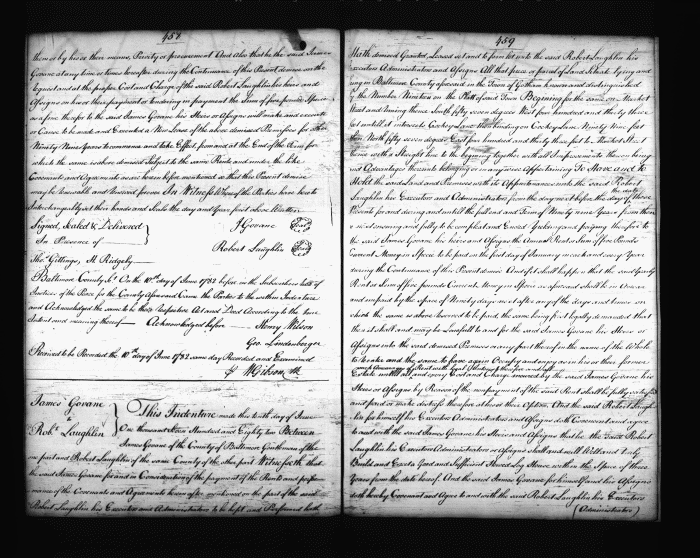 458
them or by his or their means, Privity or procurement And also that he the said James
Govane at any time or times hereafter during the Continuance of this Present demise on the
request and at the proper Cost and Charge of the said Robert Laughlin his heirs and
Assigns on his or their payment or tendering in payment the Sum of five pounds Specie
as a fine therefor to the said James Govane his Heirs or Assigns will make and execute
or Cause to be made and Executed a New Lease of the above demised Premises for other
Ninety Nine Years to commence and take Effect from and at the End of the Term for
which the same is above demised Subject to the same Rents and under the like
Covenants and Agreements as are herein before mentioned so that this Present demise
may be renewable and renewed forever In Witness Whereof the Parties have hereto
Interchangeably set their hands and Seals the day and Year first above Written
Signed, Sealed & Delivered
In Presence of
J Govane Seal
Robert Laughlin Seal
Thos. Gittings, H Ridgely
Baltimore County Sc. On the 10th day of June 1782 before us the Subscribers both of
Justices of the Peace for the County Aforesaid Came the Parties to the within Indenture
and Acknowledged the same to be their Respective Act and Deed According to the true
Intent and meaning thereof Acknowledged before Henry Wilson
Geo. Lindenberger
Received to be Recorded the 10th day of June 1782 same day Recorded and Examined
W Gibson Clk
James Govane
&
Robt. Laughlin
This Indenture made this tenth day of June
One thousand Seven Hundred and Eighty two Between
James Govane of the County of Baltimore Gentleman of the
one part and Robert Laughlin of the same County of the other part Witnesseth that
the said James Govane for and in Consideration of the payment of the Rents and perfor-
mance of the Covenants and Agreements hereinafter mentioned on the part of the said
Robert Laughlin his Executors and Administrators to be kept and Performed hath
459
Hath demised Granted, Leased set and to farm let unto the said Robert Laughlin his
Executors Administrators and Assigns All that piece or parcel of Land Situate lying and
being in Baltimore County aforesaid in the Town of Gotham known and distinguished
by the Number Nineteen on the Platt of said Town Beginning for the same on Market
Street and runing thence South fifty seven degrees West four hundred and thirty three
feet until it intersects Cockeys Lane then bounding on Cockeys Lane Ninety Nine feet
then North fifty seven degrees East four hundred and thirty feet to Market Street
thence with a Straight line to the beginning together with all Improvements thereon being
and Advantages thereunto belonging or in any wise Appertaining To Have and to
Hold the said Land and Premises with its Appurtenances unto the said Robert
Laughlin his Executors and Administrators from the day next before the day of the date of these
Presents for and during and until the full end and Term of Ninety nine Years from thence
next ensuing and fully to be compleat and Ended Yielding and paying therefor to
the said James Govane his heirs and Assigns the Annual Rent or Sum of five Pounds
Current Money in Specie to be paid on the first day of January in each and every Year
during the Continuance of this Present demise And if it shall happen that the said Yearly
Rent or Sum of five pounds Current Money in Specie as aforesaid shall be in Arrear
and unpaid by the space of Ninety days next after any of the days and times on
which the same is above reserved to be paid, the same being first legally demanded that
then it shall and may be Lawfull to and for the said James Govane his Heirs or
Assigns into the said demised Premises or any part thereof in the name of the Whole
to Enter and the same to have again Occupy and enjoy as in his or their former
Estate until all and every Cost and Charge incurred by the said James Govane his
Heirs or Assigns by Reason of the nonpayment of the said Rent shall be fully satisfied
and paid or make distress therefor at his or their Option. And the said Robert Laugh-
lin for himself his Executors Administrators and Assigns doth Covenant and agree
to and with the said James Govane his Heirs and Assigns that he the said Robert
Laughlin his Executors Administrators or Assigns shall and will Well and truly
Build and Erect a Good and Sufficient Hewed Log House within the Space of three
Years from the date hereof. And the said James Govane for himself and his Assigns
doth hereby Covenant and Agree to and with the said Robert Laughlin his Executors
(Administrators)